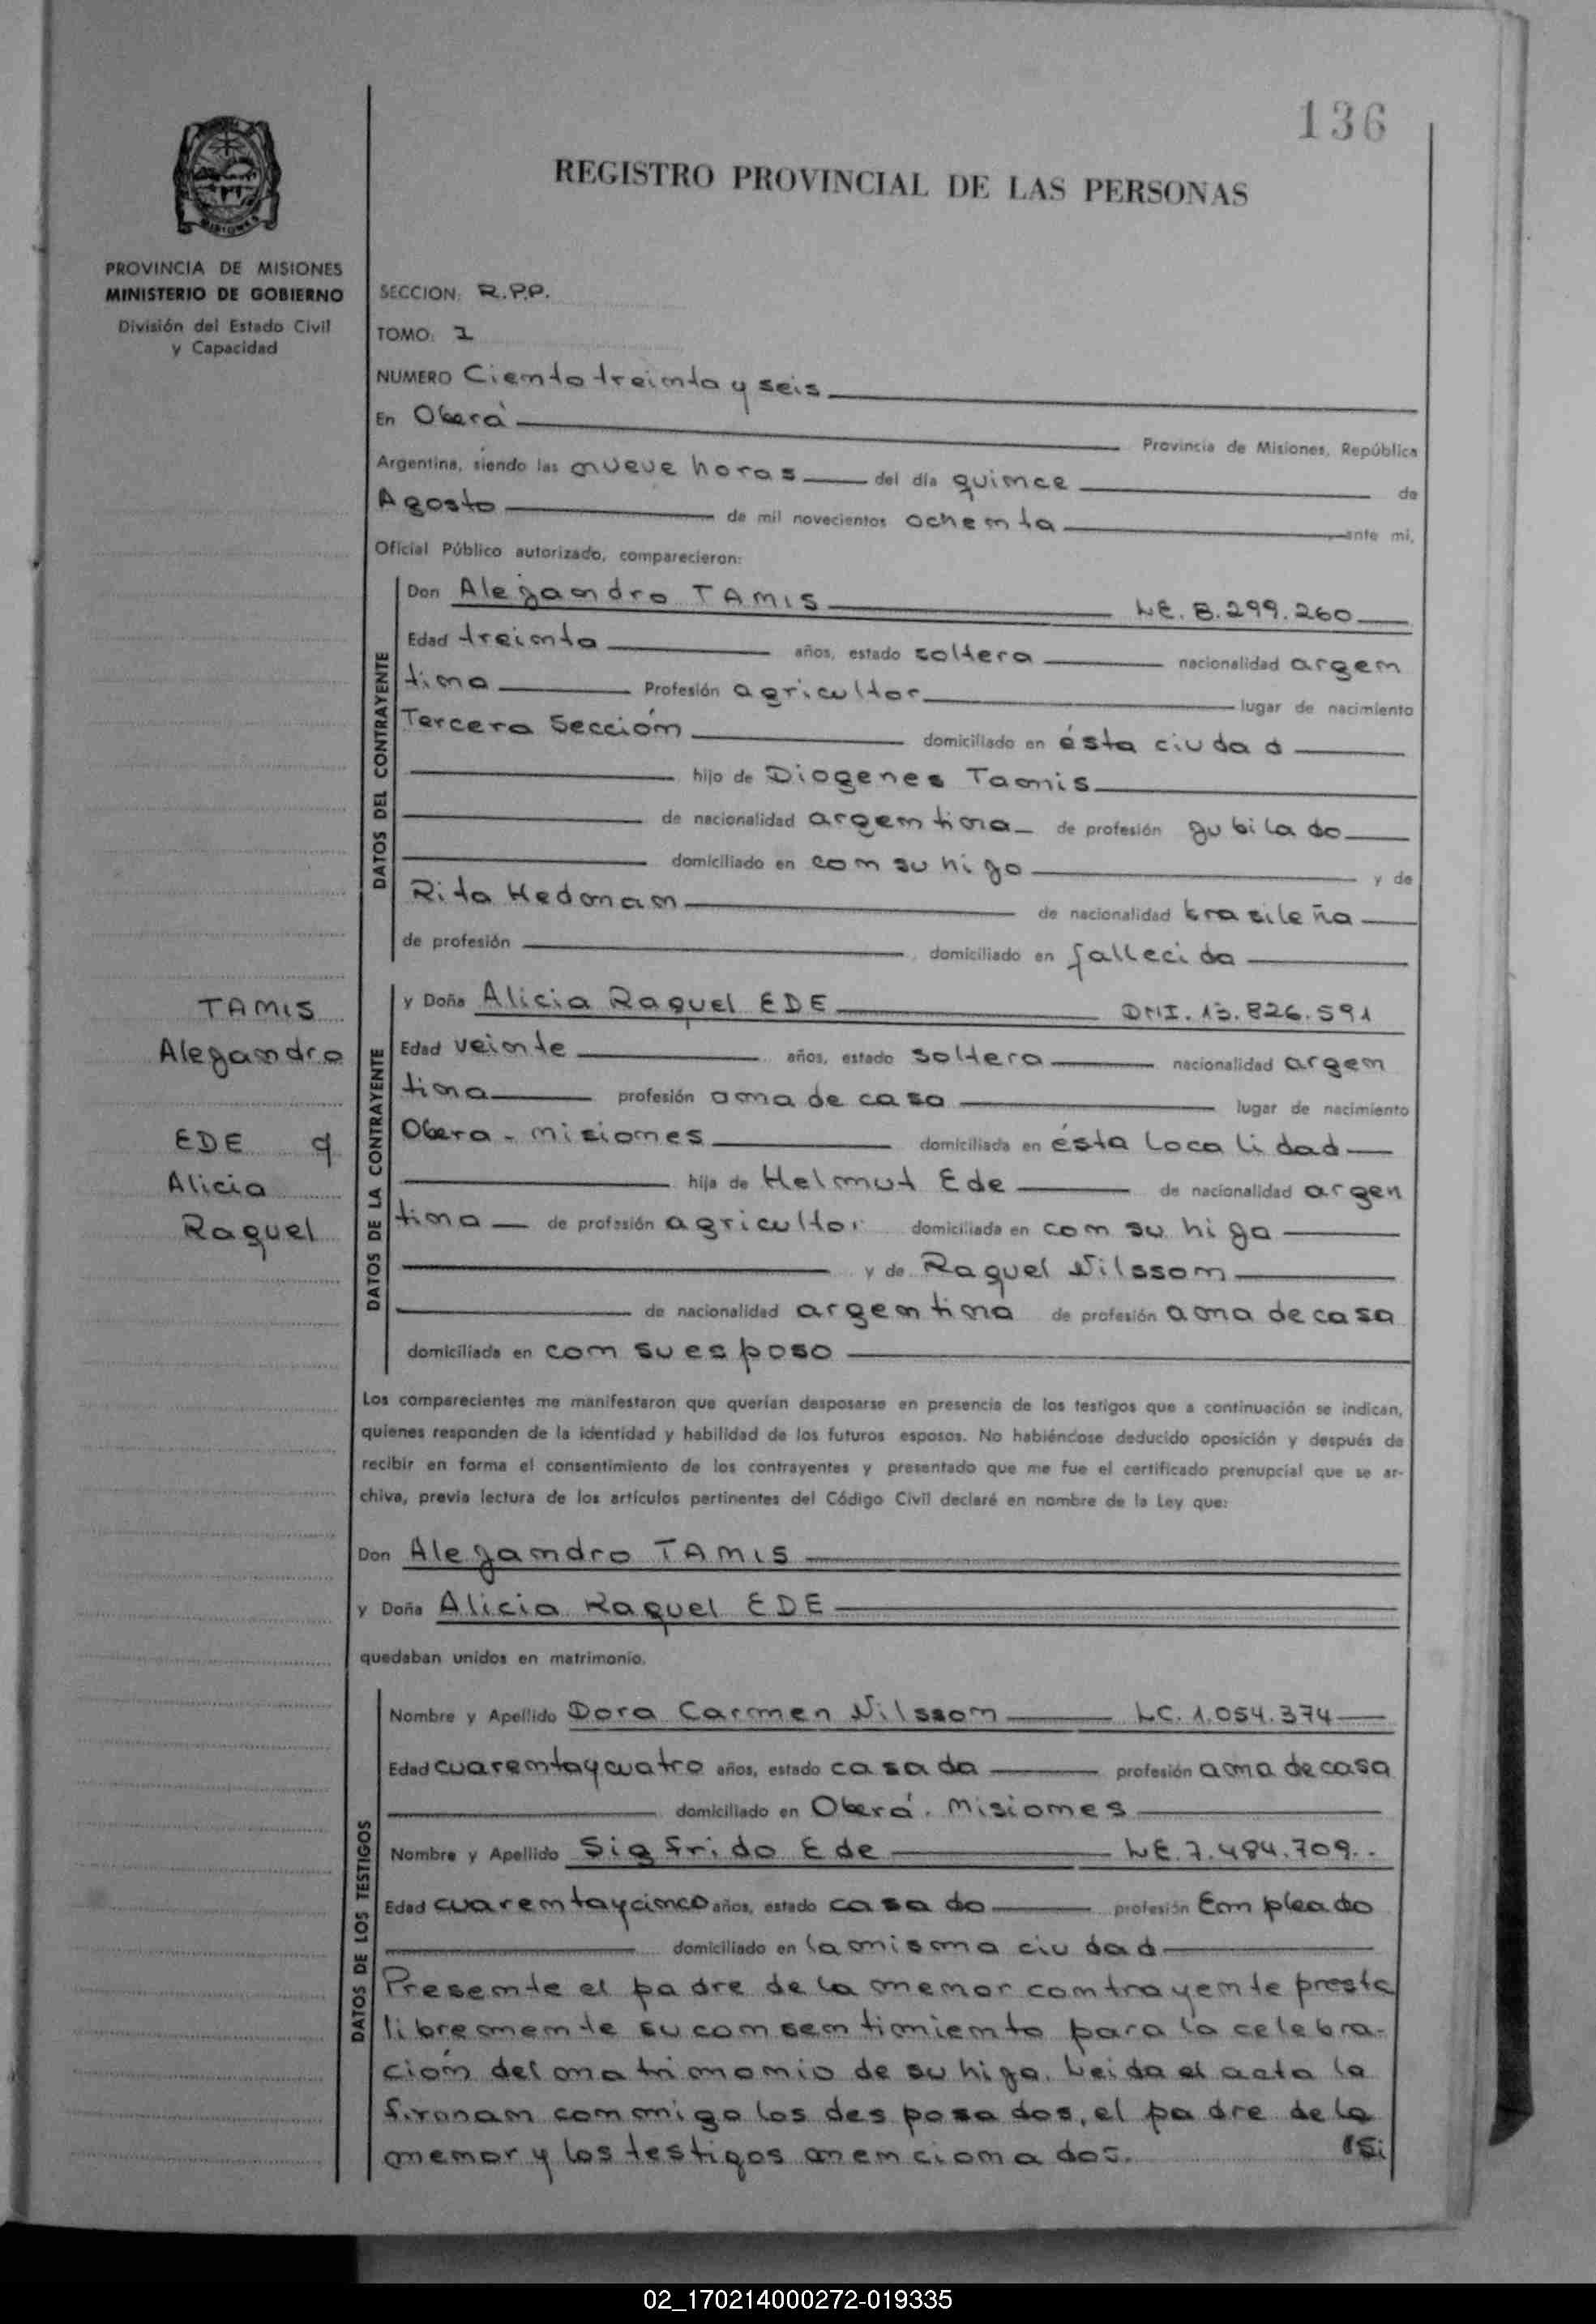 136
REGISTRO PROVINCIAL DE LAS PERSONAS
MISIONES
PROVINCIA DE MISIONES
MINISTERIO DE GOBIERNO
División del Estado Civil
y Capacidad
SECCION: R.P.P.
TOMO: 1
NUMERO Ciento treinta y seis
En Oberá Provincia de Misiones, República
Argentina, siendo las nueve horas del día quince de
Agosto de mil novecientos ochenta ante mi,
Oficial Público autorizado, comparecieron:
DATOS DEL CONTRAYENTE
Don Alejandro TAMIS LE. 8.299.260
Edad treinta años, estado soltera nacionalidad argen
tina Profesión agricultor lugar de nacimiento
Tercera Sección domiciliado en ésta ciudad
hijo de Diogenes Tamis
de nacionalidad argentina de profesión jubilado
domiciliado en con su hijo y de
Rita Hedman de nacionalidad brasileña
de profesión domiciliado en fallecida
TAMIS
Alejandro
EDE y
Alicia
Raquel
DATOS DE LA CONTRAYENTE
y Doña Alicia Raquel EDE DNI. 13.826.591
Edad veinte años, estado soltera nacionalidad argen
tina profesión ama de casa lugar de nacimiento
Obera - misiones domiciliada en ésta localidad
hija de Helmut Ede de nacionalidad argen
tina de profesión agricultor domiciliada en con su hija
y de Raquel Nilsson
de nacionalidad argentina de profesión ama de casa
domiciliada en con su esposo
Los comparecientes me manifestaron que querían desposarse en presencia de los testigos que a continuación se indican,
quienes responden de la identidad y habilidad de los futuros esposos. No habiéndose deducido oposición y después de
recibir en forma el consentimiento de los contrayentes y presentado que me fue el certificado prenupcial que se ar-
chiva, previa lectura de los artículos pertinentes del Código Civil declaré en nombre de la Ley que:
Don Alejandro TAMIS
y Doña Alicia Raquel EDE
quedaban unidos en matrimonio.
DATOS DE LOS TESTIGOS
Nombre y Apellido Dora Carmen Nilsson LC. 1.054.374
Edad cuarenta y cuatro años, estado casada profesión ama de casa
domiciliado en Oberá. Misiones
Nombre y Apellido Sigfrido Ede LE. 7.484.709
Edad cuarenta y cinco años, estado casado profesión Empleado
domiciliado en la misma ciudad
Presente el padre de la menor contrayente presta
libremente su consentimiento para la celebra-
ción del matrimonio de su hija. Leida el acta la
firman conmigo los desposados, el padre de la
menor y los testigos mencionados.
02_170214000272-019335